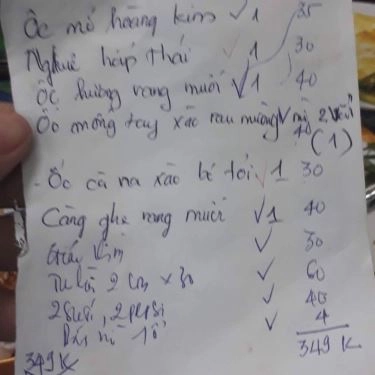 Ốc mỡ hoàng kim ✓ 1 35
Nghêu hấp thái ✓ 1 30
Ốc hương rang muối ✓ 1 40
Ốc móng tay xào rau muống ✓ mì 2
40 (1)
- Ốc cà na xào bơ tỏi ✓ 1 30
Càng ghẹ rang muối ✓ 1 40
✓ 30
2 con x 30 ✓ 60
2 suối, 2 pepsi ✓ 40
Bánh mì 1 ổ ✓ 4
349K 349K